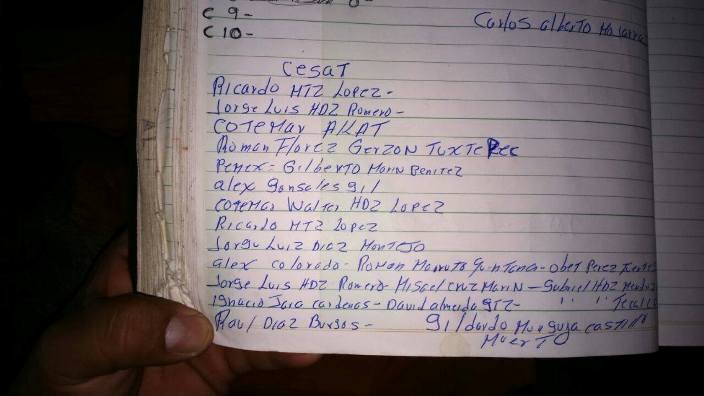 C 9-
C 10-
Carlos alberto
CESAT
Ricardo MTZ Lopez-
Jorge Luis HDZ Romero-
COTEMAR AKAT
Roman Florez Gerzon TUXTEPEC
Pemex- Gilberto Marin Benitez
alex gonsales gil
COTEMAR Walter HDZ Lopez
Ricardo MTZ Lopez
Jorge Luiz Diaz Montejo
alex colorado- Roman Quintana- obet Perez
Jorge Luis HDZ Romero- Misael cruz Marin- Gabriel HDZ
Ignacio Jara cardenas- David almeida GTZ- " "
Raul Diaz Burgos- gildardo Munguya CASTILLO
MUERTO